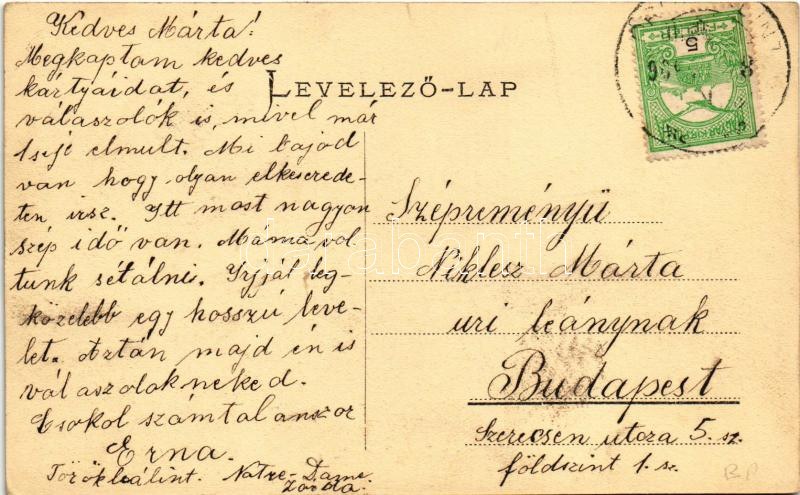 Kedves Márta!
Megkaptam kedves
kártyáidat, és
válaszolók is, mivel már
1seje elmult. Mi bajod
van hogy olyan elkeserede-
ten irsz. Itt most nagyon
szép idő van. Máma vol-
tunk sétálni. Irjjál leg-
közelebb egy hosszú leve-
let. Aztán majd én is
válaszolak neked.
Csokol számtalanszor
Erna.
Törökbálint. Notre-Dame
Zárda.
LEVELEZŐ-LAP
MAGYAR KIR. POSTA
5
Szépreményü
Niklesz Márta
uri leánynak
Budapest
Szerecsen utcza 5. sz.
földszint 1. sz.
BP